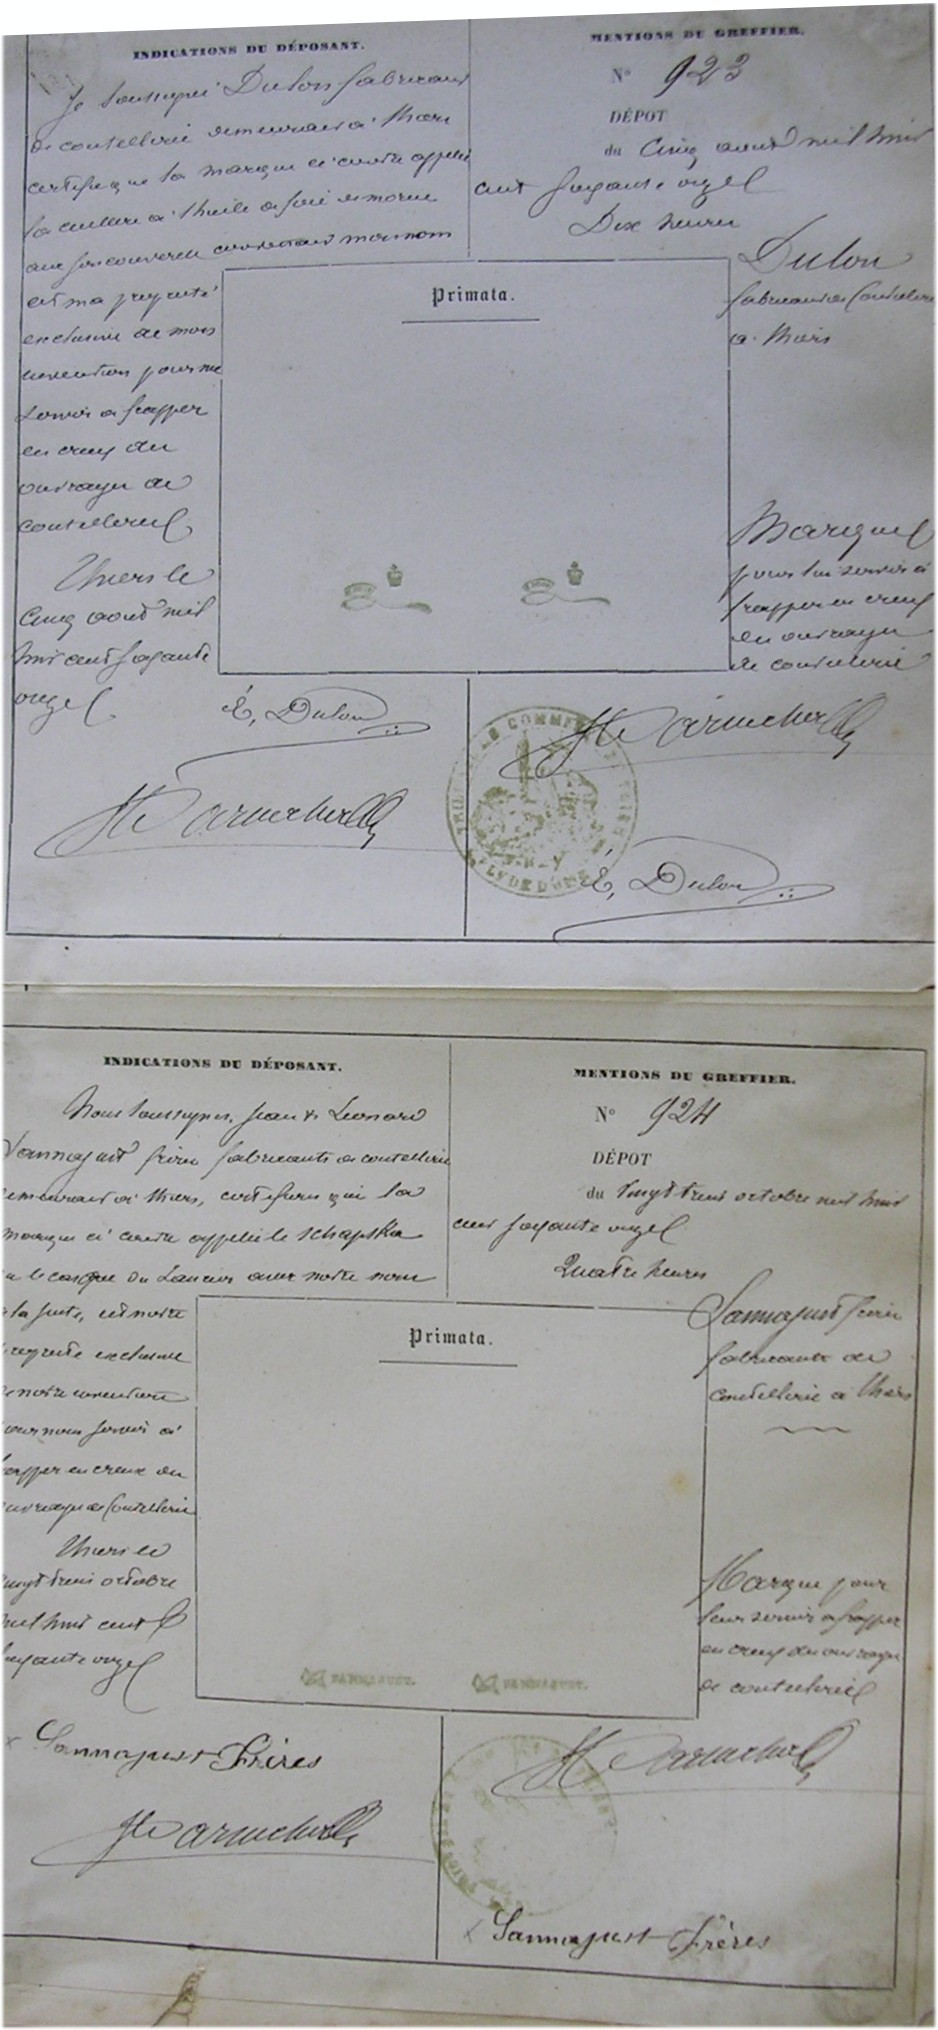 INDICATIONS DU DÉPOSANT.
Je soussigné Dulon fabricant
de coutellerie demeurant à Thiers
certifie que la marque ci contre appelée
la cuillere à l'huile de foie de morue
avec son couvercle couronnant mon nom
est ma propriété
exclusive de mon
invention pour me
servir à frapper
en creux du
ouvrages de
coutellerie
Thiers le
cinq aout mil
huit cent soixante
onze
É, Dulon
MENTIONS DU GREFFIER.
N° 923
DÉPOT
du Cinq aout mil huit
cent soixante onze
Dix heures
Dulon
fabricant de Coutellerie
à Thiers
Primata.
Marque
pour lui servir à
frapper en creux
des ouvrages
de coutellerie
É, Dulon
INDICATIONS DU DÉPOSANT.
Nous soussignés, Jean & Leonard
Sannajust frères fabricants de coutellerie
demeurant à Thiers, certifions que la
marque ci contre appelée le schapska
ou le casque du Lancier avec notre nom
à la suite, est notre
propriété exclusive
de notre invention
pour nous servir à
frapper en creux du
ouvrages de Coutellerie
Thiers le
vingt trois octobre
mil huit cent
soixante onze
Sannajust Frères
MENTIONS DU GREFFIER.
N° 924
DÉPOT
du Vingt trois octobre mil huit
cent soixante onze
Quatre heures
Sannajust frères
fabricants de
coutellerie à Thiers
Primata.
SANNAJUST. SANNAJUST.
Marque pour
leur servir à frapper
en creux des ouvrages
de coutellerie
Sannajust Frères